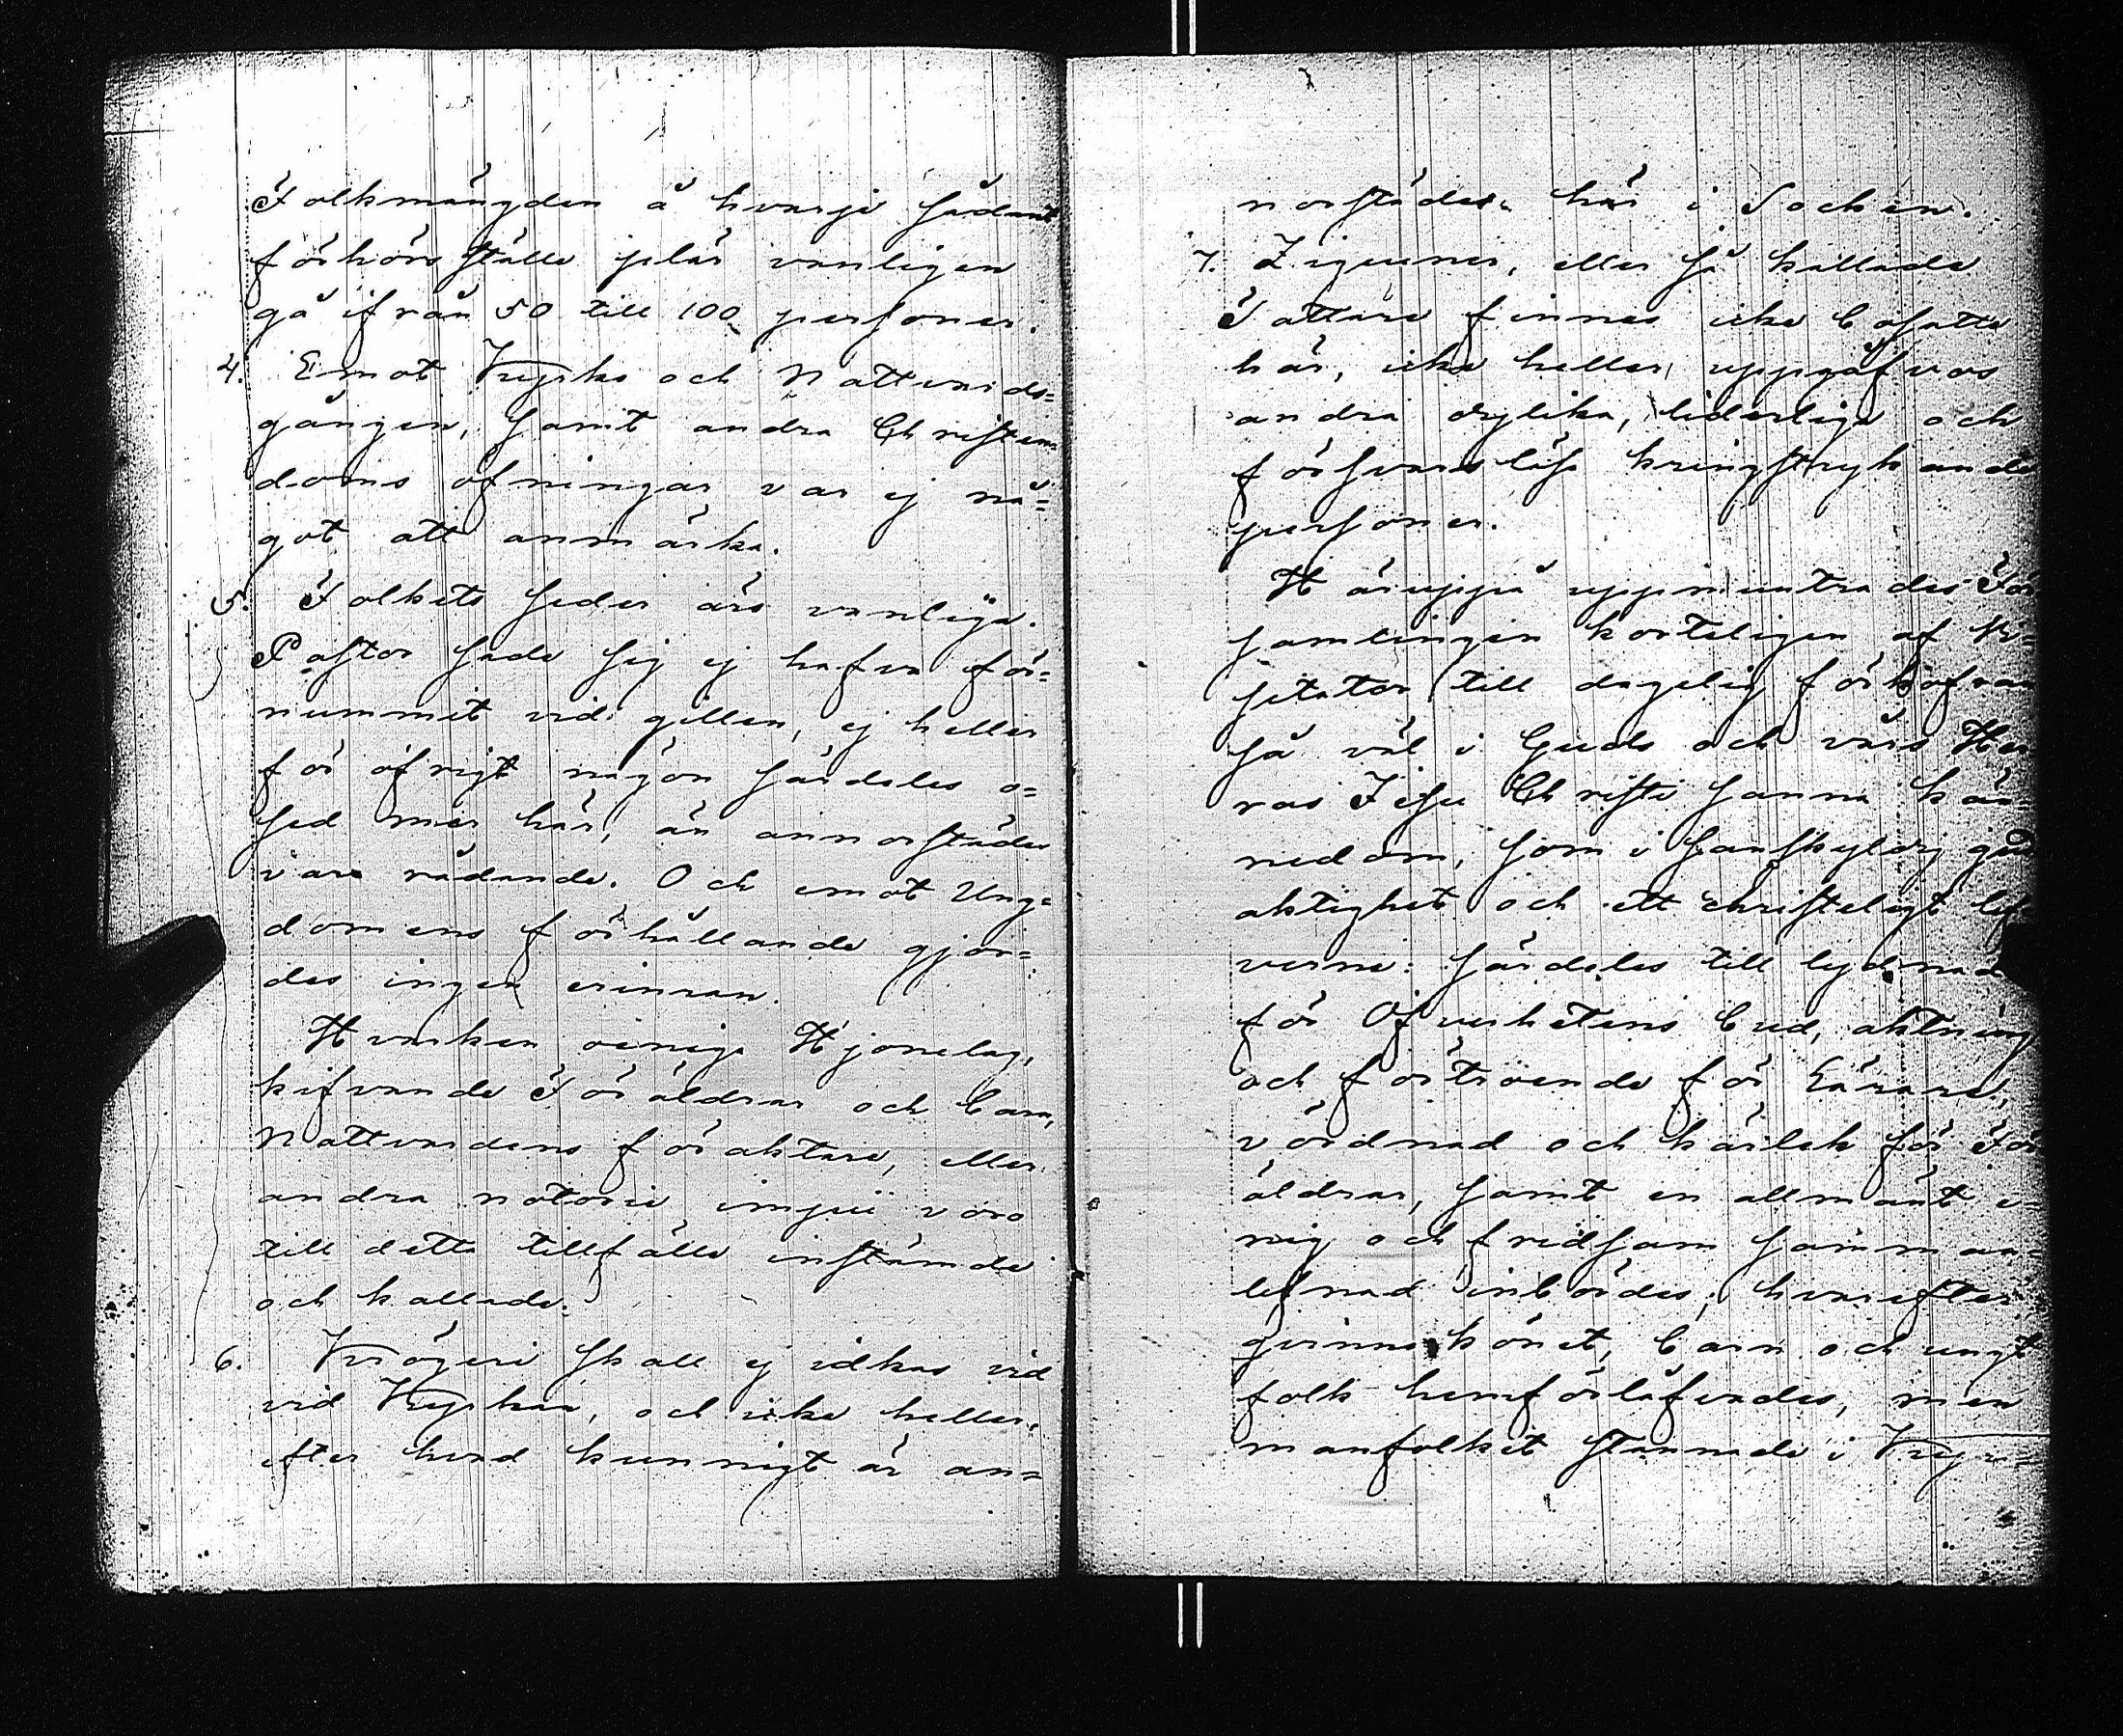 Folkmängden å hvarje sådant
förhörsställe plär vanligen
gå ifrån 50 till 100 personer.
4. Emot Kyrko och Nattvards=
gången, samt andra Christen=
doms öfningar var ej nå=
got att anmärka.
5. Folkets seder äro vanliga.
Pastor sade sig ej hafva för=
nummit vid gillen, ej heller
för öfrigt någon särdeles o=
sed mer här, än annorstädes
vara rådande. Och emot Ung=
domens förhållande gjor=
des ingen erinran.
Hvarken oeniga Hjonelag,
kifvande Föräldrar och barn,
Nattvardens föraktare, eller
andra notorie impii voro
till detta tillfälle instämde
och kallade.
6. Krögeri skall ej idkas vid
vid Kyrkan, och icke heller,
efter hvad kunnigt är an=
norstädes här i Socken.
7. Zigeuner, eller så kallade
Tattare finnas icke bosatte
här, icke heller uppgåfvos
andra dylika, liderliga och
försvarslösa kringstrykande
personer.
Häruppå uppmuntrades För
samlingen korteligen af Vi=
sitator till dagelig förkofran
så väl i Guds och vårs Her
ras Jesu Christi sanna kän=
nedom, som i sanskyldig gud
aktighet och ett christeligt lef
verne: särdeles till lydnad
för Öfverhetens bud, aktning
och förtroende för Lärare,
vördnad och kärlek för För
äldrar, samt en allmänt e=
nig och fridsam samman=
lefnad inbördes; hvarefter
qvinnokönet, barn och ungt
folk hemförlåfvades, men
manfolket stannade i Kyr=